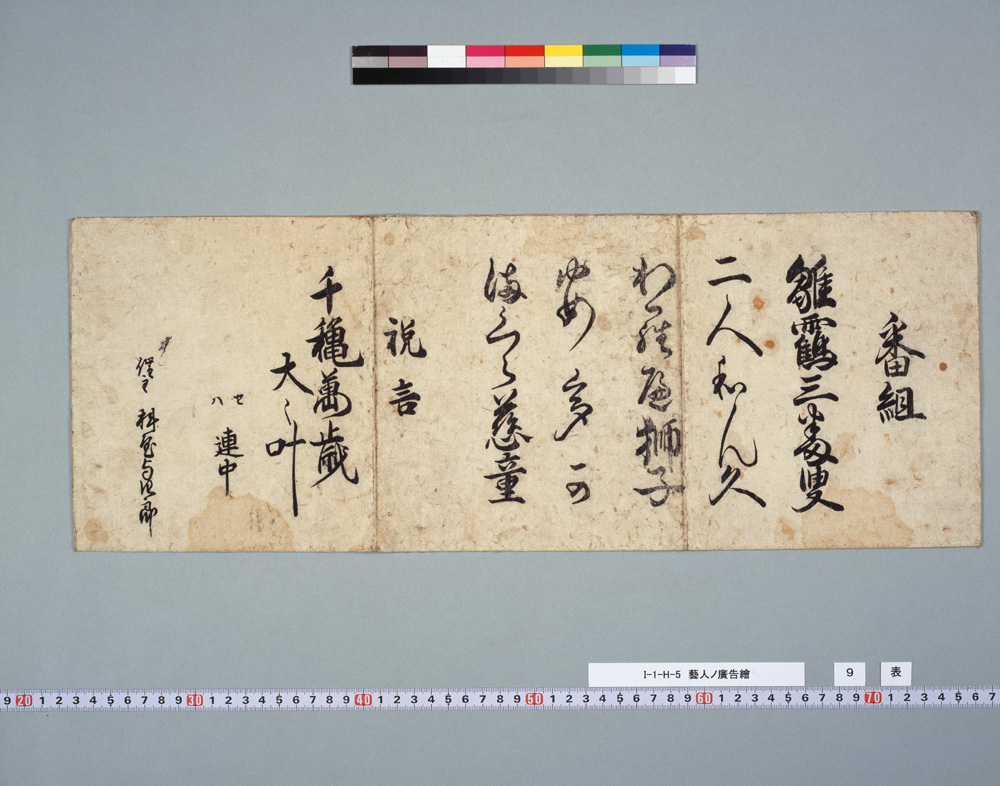 番組
雛靏三番叟
二人和ん久
わか 獅子
ゆめ 多 可
満くら慈童
祝言
千龝萬歳
大々叶
セハ
連中
I-1-H-5 藝人ノ廣告繪
9
表
9 20 1 2 3 4 5 6 7 8 9 30 1 2 3 4 5 6 7 8 9 40 1 2 3 4 5 6 7 8 9 50 1 2 3 4 5 6 7 8 9 60 1 2 3 4 5 6 7 8 9 70 1 2 3 4 5 6 7